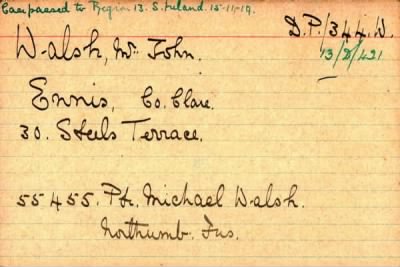 Case passed to Region 13. S. Ireland. 15-11-19.
D.P./344.W.
Walsh, Mr. John.
13/8/421
Ennis, Co. Clare.
30. Steels Terrace.
55455. Pte. Michael Walsh.
Northumb. Fus.